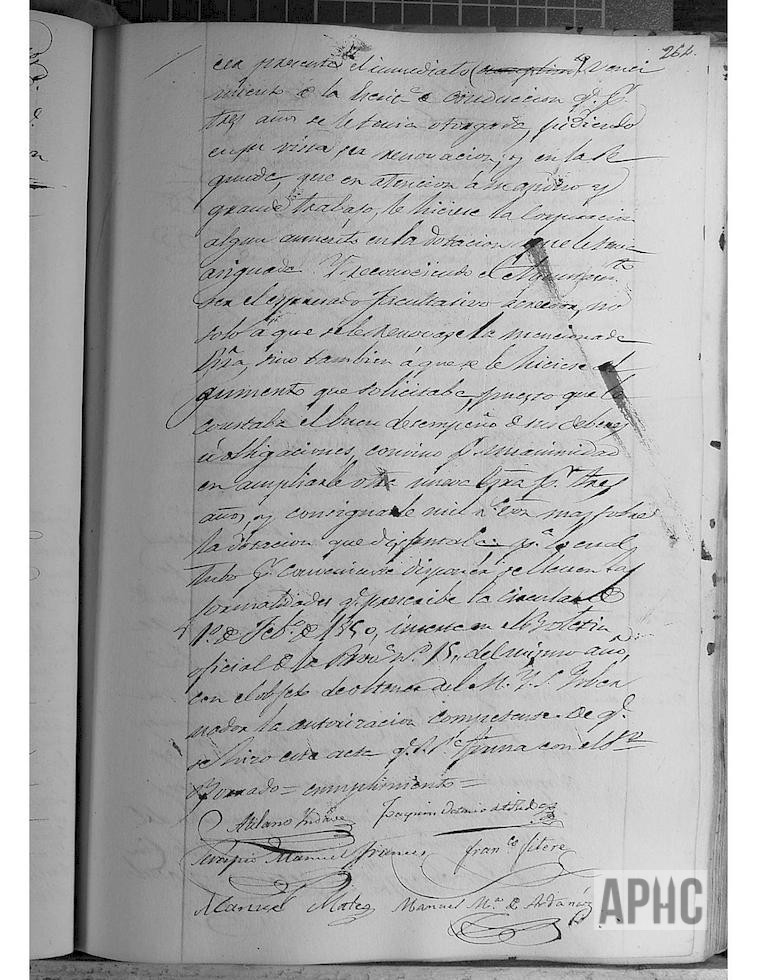 264.
cia presente el inmediato venci
miento de la Escra de conduccion qe pr
tres años se le tenia otorgada, pidiendo
en su vista su renovacion; y en la Se
gunda, que en atencion á mucho y
grande trabajo, le hiciese la Corporacion
algun aumento en la dotacion que le tenia
asignada. Y reconociendo el Ayuntamto
ser el espresado facultativo acreedor, no
solo á que se le renovase la mencionada
Escra, sino tambien á que se le hiciese el
aumento que solicitaba, puesto que le
constaba el buen desempeño de sus deberes
ú obligaciones, convino pr unanimidad
en ampliarle otra nueva Escra pr tres
años, y consignarle mil rs vn mas sobre
la dotacion que disfrutaba pa lo cual
tubo pr conveniente disponer se llenen las
formalidades qe prescribe la circular de
1o de Febo de 1850, inserta en el Boletin
oficial de la Prova No 15, del mismo año,
con el objeto de obtener del M. Y. S. Gober
nador la autorizacion competente. De qe
se hizo esta acta qe S. Sa firma con el
Borrado = cumplimiento =
Manuel Frances
Franco Sitere
Manuel Mateo
Manuel Ma de Ardanáz
APHC